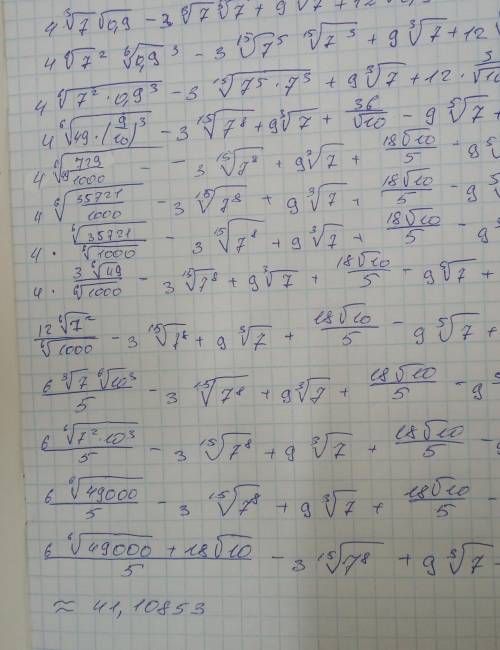 4 ∛7 √0,9 − 3 ⁵√7 ∛7 + 9 ∛7 + 12
4 ⁶√7² ⁶√0,9³ − 3 ¹⁵√7⁵ ¹⁵√7³ + 9 ∛7 + 12
4 ⁶√7² · 0,9³ − 3 ¹⁵√7⁵ · 7³ + 9 ∛7 + 12 · 3/√10
4 ⁶√49 · (9/10)³ − 3 ¹⁵√7⁸ + 9 ∛7 + 36/√10 − 9 ⁵√7 +
4 ⁶√729/1000 − − 3 ¹⁵√7⁸ + 9 ∛7 + 18√10/5 − 9
4 ⁶√35721/1000 − 3 ¹⁵√7⁸ + 9 ∛7 + 18√10/5 − 9
4 · ⁶√35721/⁶√1000 − 3 ¹⁵√7⁸ + 9 ∛7 + 18√10/5 − 9
4 · 3 ⁶√49/⁶√1000 − 3 ¹⁵√7⁸ + 9 ∛7 + 18√10/5 − 9 ⁵√7 +
12 ⁶√7²/⁶√1000 − 3 ¹⁵√7⁸ + 9 ∛7 + 18√10/5 − 9 ⁵√7 +
6 ∛7 ⁶√10³/5 − 3 ¹⁵√7⁸ + 9 ∛7 + 18√10/5 − 9
6 ⁶√7² · 10³/5 − 3 ¹⁵√7⁸ + 9 ∛7 + 18√10/5 −
6 ⁶√49000/5 − 3 ¹⁵√7⁸ + 9 ∛7 + 18√10/5 −
6 ⁶√49000 + 18√10/5 − 3 ¹⁵√7⁸ + 9 ∛7 −
≈ 41,10853